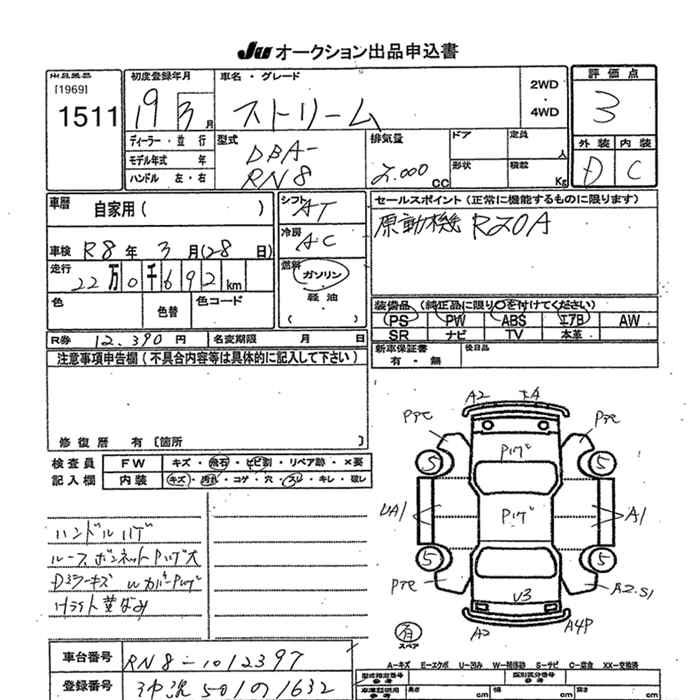 JU オークション出品申込書
出品番号
[1969]
1511
初度登録年月
19 3月
車名・グレード
ストリーム
2WD
・
4WD
評価点
3
ディーラー・並行
モデル年式 年
ハンドル 左・右
型式
DBA-
RN8
排気量
2.000
cc
ドア
定員
人
形状
積載
Kg
外装 内装
D C
車歴
自家用( )
車検 R8年 3月(28日)
走行
22万0千692km
色
色替
色コード
シフト
AT
冷房
AC
燃料
ガソリン
軽油
( )
セールスポイント(正常に機能するものに限ります)
原動機 R20A
装備品(純正品に限り○を付けてください)
PS PW ABS エアB AW
SR ナビ TV 本革
R券 12.390円
名変期限 月 日
新車保証書
有・無
後日品
注意事項申告欄(不具合内容等は具体的に記入して下さい)
修復歴 有〔箇所 〕
検査員
記入欄
FW キズ・飛石・ヒビ割・リペア跡・×要
内装 キズ・汚れ・コゲ・穴・スレ・キレ・破レ
ハンドルハゲ
ルーフボンネットPハゲ大
Dミラーキズ
ライト黄ばみ
A2
Pアセ
Pアセ
5
5
Pハゲ
UA1
Pハゲ
A1
5
5
Pアセ
A2.S1
V3
A2
A4P
有
スペア
車台番号
RN8-1012397
登録番号
沖縄501の1632
A-キズ E-エクボ U-凹み W-補修跡 S-サビ C-腐食 XX-交換済
型式指定番号
参考
類別区分番号
参考
長さ
cm
幅
cm
高さ
cm